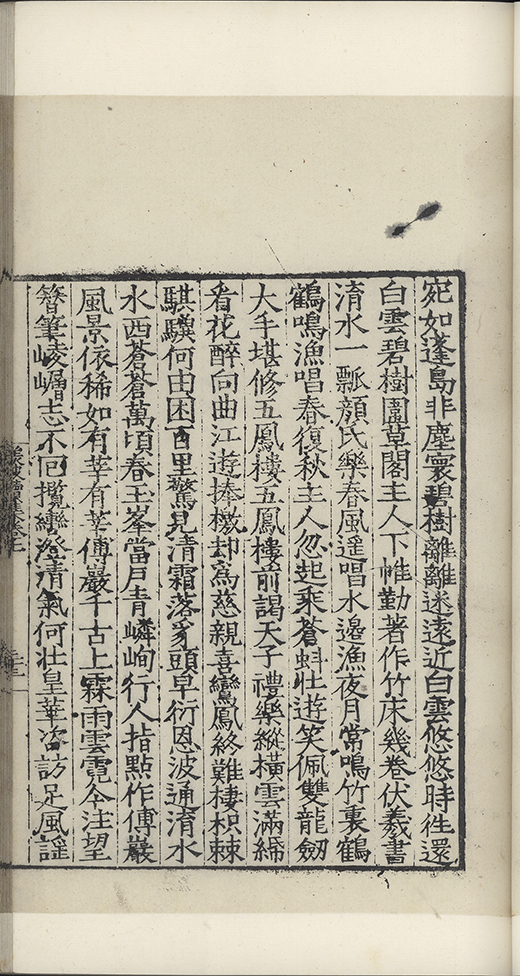 宛如蓬島非塵寰碧樹離離迷遠近白雲悠悠時徃還
白雲碧樹圍草閣主人下帷勤著作竹床幾巻伏羲書
淯水一瓢顔氏樂春風遥唱水邊漁夜月常鳴竹裏鶴
鶴鳴漁唱春復秋主人忽起乘蒼虯壮遊笑佩雙龍劒
大手堪修五鳳樓五鳳樓前謁天子禮樂縱橫雲滿綈
看花醉向曲江遊捧檄却爲慈親喜鸞鳳終難棲枳棘
騏驥何由困百里驚見清霜落豸頭早衍恩波通淯水
水西蒼蒼萬頃春玉峯當戸青嶙峋行人指點作傅巖
風景依稀如有莘有莘傅巖千古上霖雨雲霓今注望
簪筆崚嶒志不回攬轡澄清氣何壮皇華咨訪足風謡